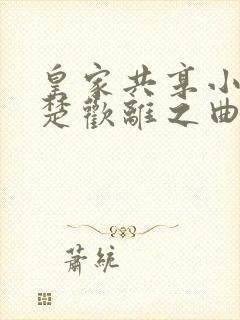 皇家共享小
楚歡離之曲
蕭統